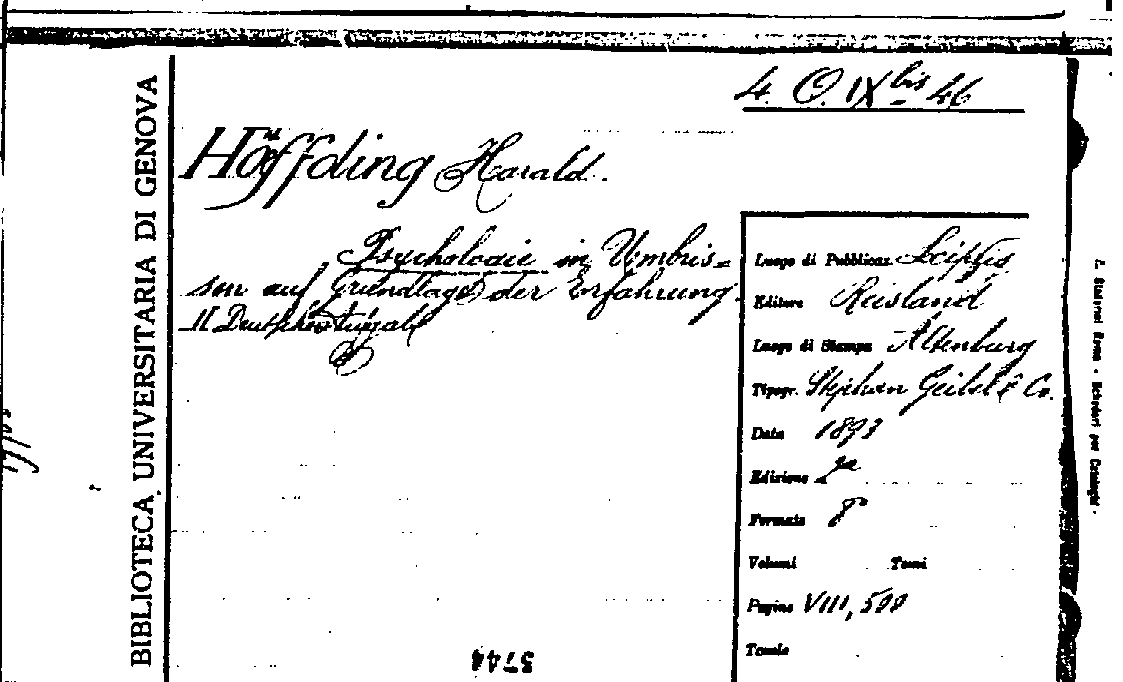 4. O. IX bis 46
BIBLIOTECA UNIVERSITARIA DI GENOVA
Höffding Harald.
Psychologie in Umbris=
sen auf Grundlage der Erfahrung.
II Deutsche Ausgabe
Luogo di Pubblicaz. Leipzig
Editore Reisland
Luogo di Stampa Altenburg
Tipogr. Stephan Geibel & Co.
Data 1893
Edizione 2a
Formato 8°
Volumi Tomi
Pagine VIII, 500
Tavole
5744